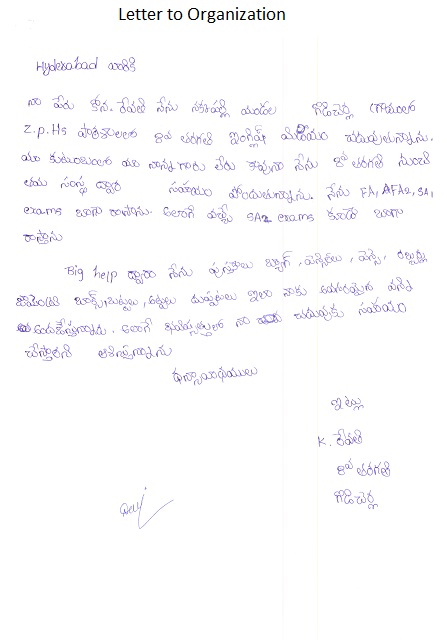 Letter to Organization
Hyderabad వారికి
నా పేరు కోన. రేవతి నేను నక్కపల్లి మండల గొడిచెర్ల గ్రామంలో
Z.p.Hs పాఠశాలలో 8వ తరగతి ఇంగ్లీష్ మీడియం చదువుతున్నాను.
మా కుటుంబంలో మా నాన్న గారు లేరు కావున నేను 8వ తరగతి నుంచి
తమ సంస్థ ద్వారా సహాయం పొందుతున్నాను. నేను FA, AFA2, SA1
exams బాగా రాసాను. అలాగే వచ్చే SA2 exams కూడా బాగా
రాస్తాను
Big help ద్వారా నేను పుస్తకాలు బ్యాగ్, పెన్సిల్లు, పెన్స్, రబ్బర్లు
బాక్స్, బుట్టలు, దుప్పటలు ఇలా నాకు అవసరమైన వన్ని
అందజేస్తున్నారు. అలాగే భవిష్యత్తులో నా చదువుకు సహాయం
చేస్తారని ఆశిస్తున్నాను
ధన్యవాదములు
ఇట్లు
K. రేవతి
8వ తరగతి
గొడిచెర్ల